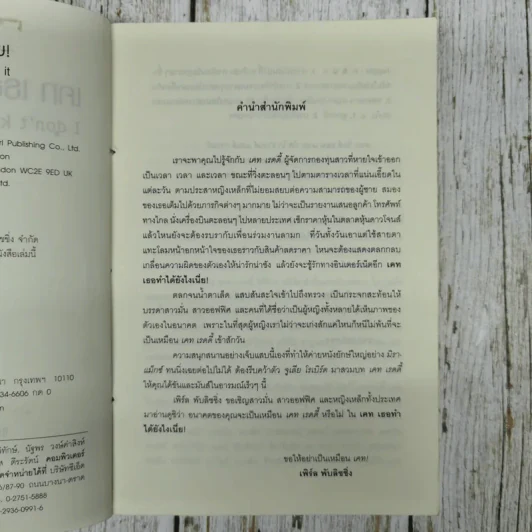 ย!
it
ri Publishing Co., Ltd.
ndon WC2E 9ED UK
td.
ชชิ่ง จำกัด
ังสือเล่มนี้
า กรุงเทพฯ 10110
34-6606 กด 0
คอมพิวเตอร์
ัดจำหน่ายได้ที่ บริษัทซีเอ็ด
6/87-90 ถนนบางนา-ตราด
โทร. 0-2751-5888
-2936-0991-6
คำนำสำนักพิมพ์
เราจะพาคุณไปรู้จักกับ เคท เรดดี้ ผู้จัดการกองทุนสาวที่หายใจเข้าออก
เป็นเวลา เวลา และเวลา ขณะที่วิ่งตะลอนๆ ไปตามตารางเวลาที่แน่นเอี้ยดใน
แต่ละวัน ตามประสาหญิงเหล็กที่ไม่ยอมสยบต่อความสามารถของผู้ชาย สมอง
ของเธอเต็มไปด้วยภารกิจต่างๆ มากมาย ไม่ว่าจะเป็นรายงานเสนอลูกค้า โทรศัพท์
ทางไกล นั่งเครื่องบินตะลอนๆ ไปหลายประเทศ เช็กราคาหุ้นในตลาดหุ้นดาวโจนส์
แล้วไหนยังจะต้องรบรากับเพื่อนร่วมงานลามก ที่วันทั้งวันเอาแต่ใช้สายตา
แทะโลมหน้าอกหน้าใจของเธอราวกับสินค้าลดราคา ไหนจะต้องแสดงตลกกลบ
เกลื่อนความผิดของตัวเองให้น่ารักน่าชัง แล้วยังจะชู้รักทางอินเตอร์เน็ตอีก เคท
เธอทำได้ยังไงเนี่ย!
ตลกจนน้ำตาเล็ด แสบสันสะใจเข้าไปถึงทรวง เป็นกระจกสะท้อนให้
บรรดาสาวมั่น สาวออฟฟิศ และคนที่ได้ชื่อว่าเป็นผู้หญิงทั้งหลายได้เห็นภาพของ
ตัวเองในอนาคต เพราะในที่สุดผู้หญิงเราไม่ว่าจะเก่งสักแค่ไหนก็หนีไม่พ้นที่จะ
เป็นเหมือน เคท เรดดี้ เข้าสักวัน
ความสนุกสนานอย่างเจ็บแสบนี้เองที่ทำให้ค่ายหนังยักษ์ใหญ่อย่าง มิรา-
แม็กซ์ ทนนิ่งเฉยต่อไปไม่ได้ ต้องรีบคว้าตัว จูเลีย โรเบิร์ต มาสวมบท เคท เรดดี้
ให้คุณได้ขันและมันส์ในอารมณ์เร็วๆ นี้
เพิร์ล พับลิชชิ่ง ขอเชิญสาวมั่น สาวออฟฟิศ และหญิงเหล็กทั้งประเทศ
มาอ่านดูซิว่า อนาคตของคุณจะเป็นเหมือน เคท เรดดี้ หรือไม่ ใน เคท เธอทำ
ได้ยังไงเนี่ย!
ขอให้อย่าเป็นเหมือน เคท!
เพิร์ล พับลิชชิ่ง